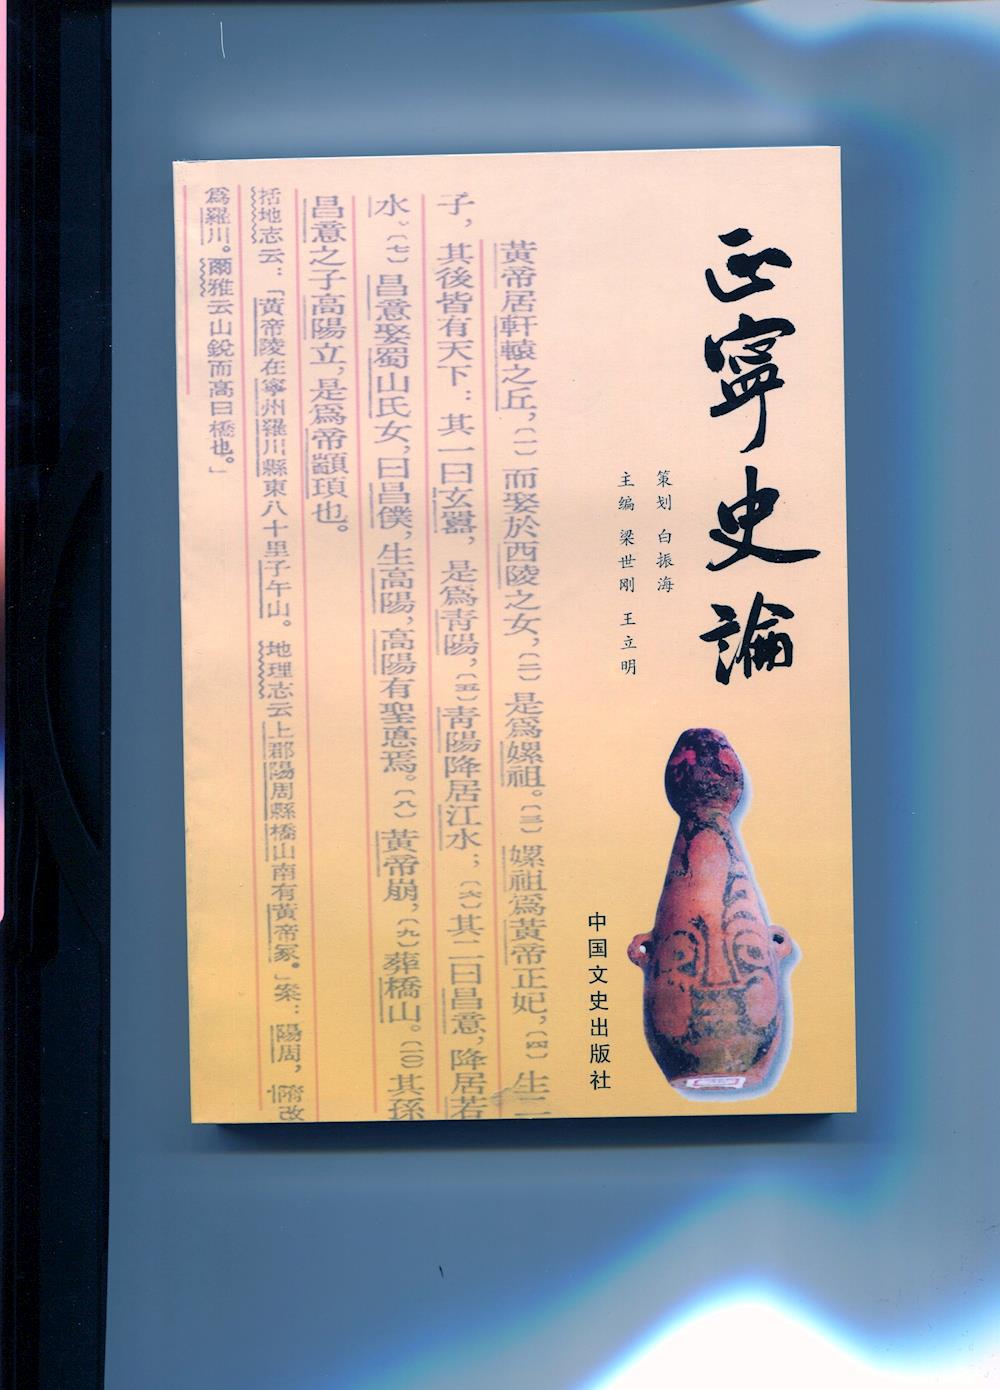 正寧史論
策划 白振海
主编 梁世刚 王立明
中国文史出版社
黃帝居軒轅之丘，〔一〕而娶於西陵之女，〔二〕是爲嫘祖。〔三〕嫘祖爲黃帝正妃，〔四〕生二
子，其後皆有天下：其一曰玄囂，是爲青陽，〔五〕青陽降居江水；〔六〕其二曰昌意，降居若
水。〔七〕昌意娶蜀山氏女，曰昌僕，生高陽，高陽有聖悳焉。〔八〕黃帝崩，〔九〕葬橋山。〔一〇〕其孫
昌意之子高陽立，是爲帝顓頊也。
括地志云：「黃帝陵在寧州羅川縣東八十里子午山。地理志云上郡陽周縣橋山南有黃帝冢。」案：陽周，隋改
爲羅川。爾雅云山銳而高曰橋也。」